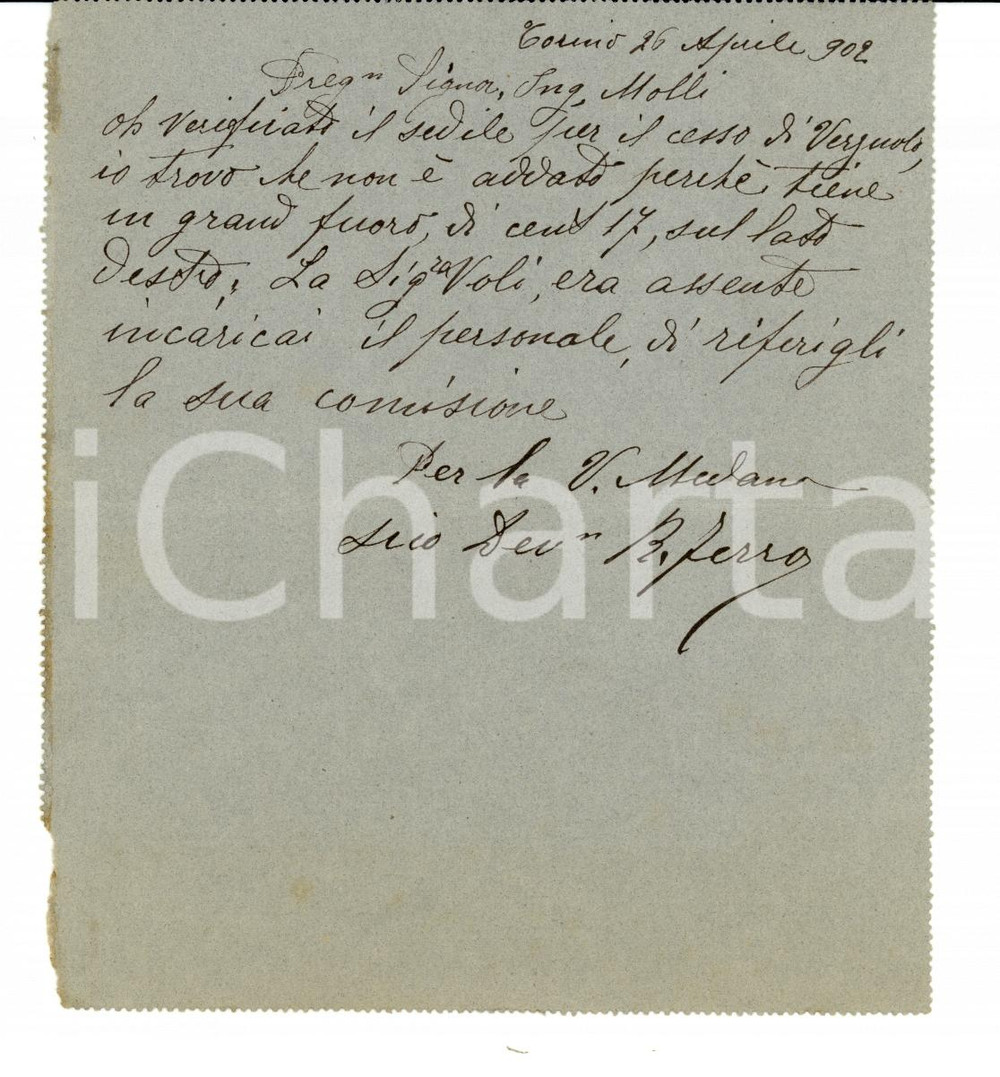 Torino 26 Aprile 902
Preg.n Signor, Ing, Molli
oh Verificato il sedile per il cesso di Verzuolo,
io trovo che non è addato perchè tiene
un grand fuoro, di cent 17, sul lato
destro, La Sig.ra Voli, era assente
incaricai il personale, di riferigli
la sua comisione
Per la V. Medana
suo Dev.n B. Ferro
iCharta